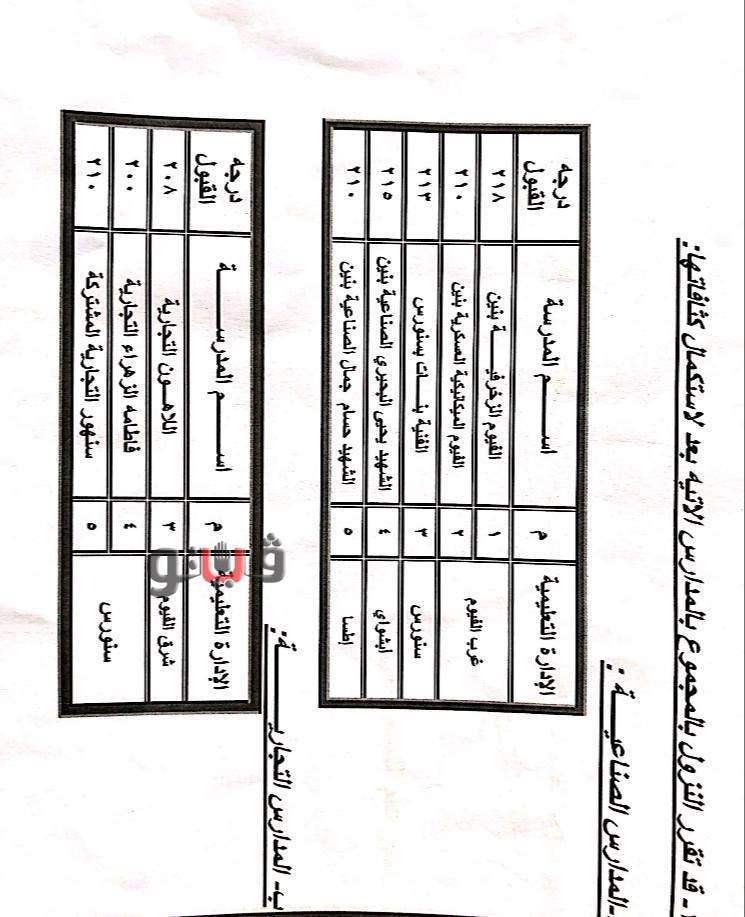 - قد تقرر النزول بالمجموع بالمدارس الاتيه بعد لاستكمال كثافاتها:
-المدارس الصناعية :
الإدارة التعليمية م اسم المدرسة درجه القبول
غرب الفيوم ١ الفيوم الزخرفية بنين ٢١٨
٢ الفيوم الميكانيكية العسكرية بنين ٢١٠
سنورس ٣ الفنية بنات بسنورس ٢١٣
ابشواي ٤ الشهيد يحيى البحيري الصناعية بنين ٢١٥
إطسا ٥ الشهيد حسام جمال الصناعية بنين ٢١٠
ب- المدارس التجارية:
الإدارة التعليمية م اسم المدرسة درجه القبول
شرق الفيوم ٣ اللاهون التجارية ٢٠٨
سنورس ٤ فاطمه الزهراء التجارية ٢٠٠
٥ سنهور التجارية المشتركة ٢١٠